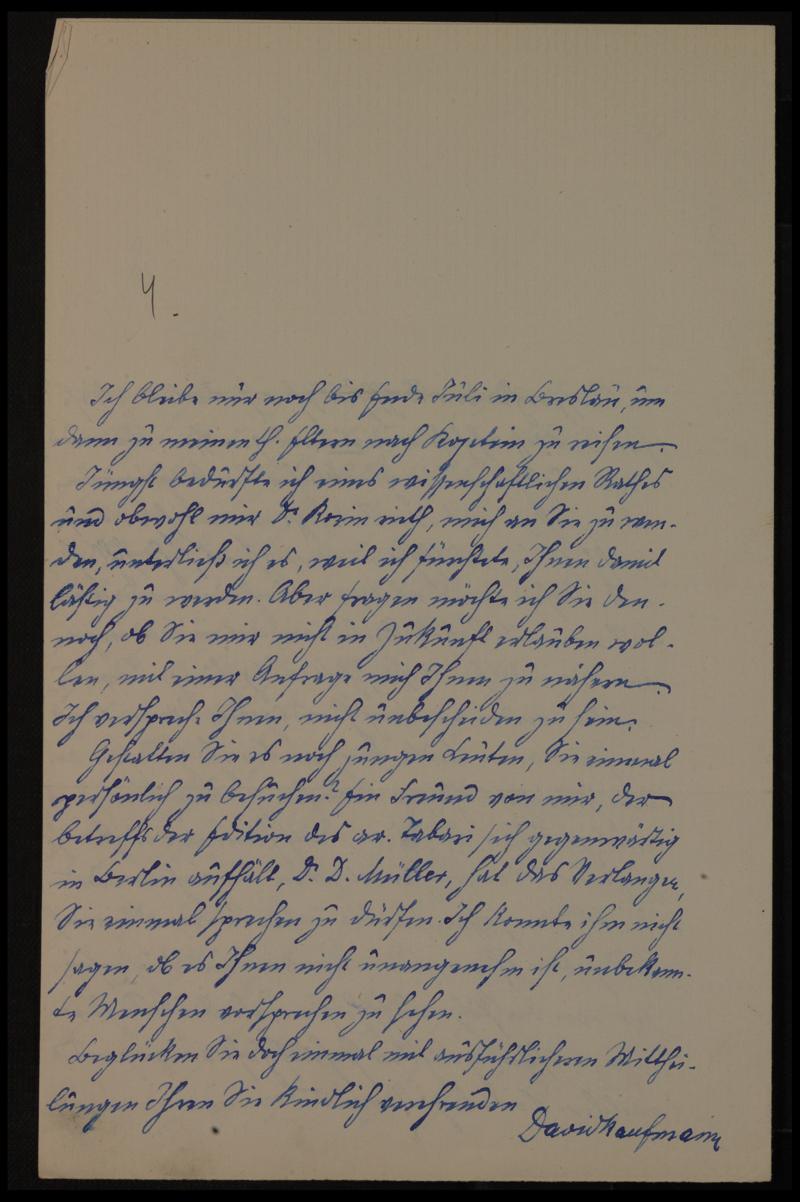 4.
Ich bleibe nur noch bis Ende Juli in Breslau, um
dann zu meinen l. Eltern nach Kojetein zu reisen.
Jüngst bedurfte ich eines wissenschaftlichen Rathes
und obwohl mir Dr. Rosin rieth, mich an Sie zu wen-
den, unterließ ich es, weil ich fürchtete, Ihnen damit
lästig zu werden. Aber fragen möchte ich Sie den-
noch, ob Sie mir nicht in Zukunft erlauben wol-
len, mit einer Anfrage mich Ihnen zu nähern.
Ich verspreche Ihnen, nicht unbescheiden zu sein.
Gestatten Sie es noch jungen Leuten, Sie einmal
persönlich zu besuchen? Ein Freund von mir, der
betreffs der Edition des ar. Tabari sich gegenwärtig
in Berlin aufhält, Dr. D. Müller, hat das Verlangen,
Sie einmal sprechen zu dürfen. Ich konnte ihm nicht
sagen, ob es Ihnen nicht unangenehm ist, unbekann-
te Menschen vorsprechen zu sehen.
Beglücken Sie doch einmal mit ausführlicheren Mitthei-
lungen Ihren Sie kindlich verehrenden
David Kaufmann